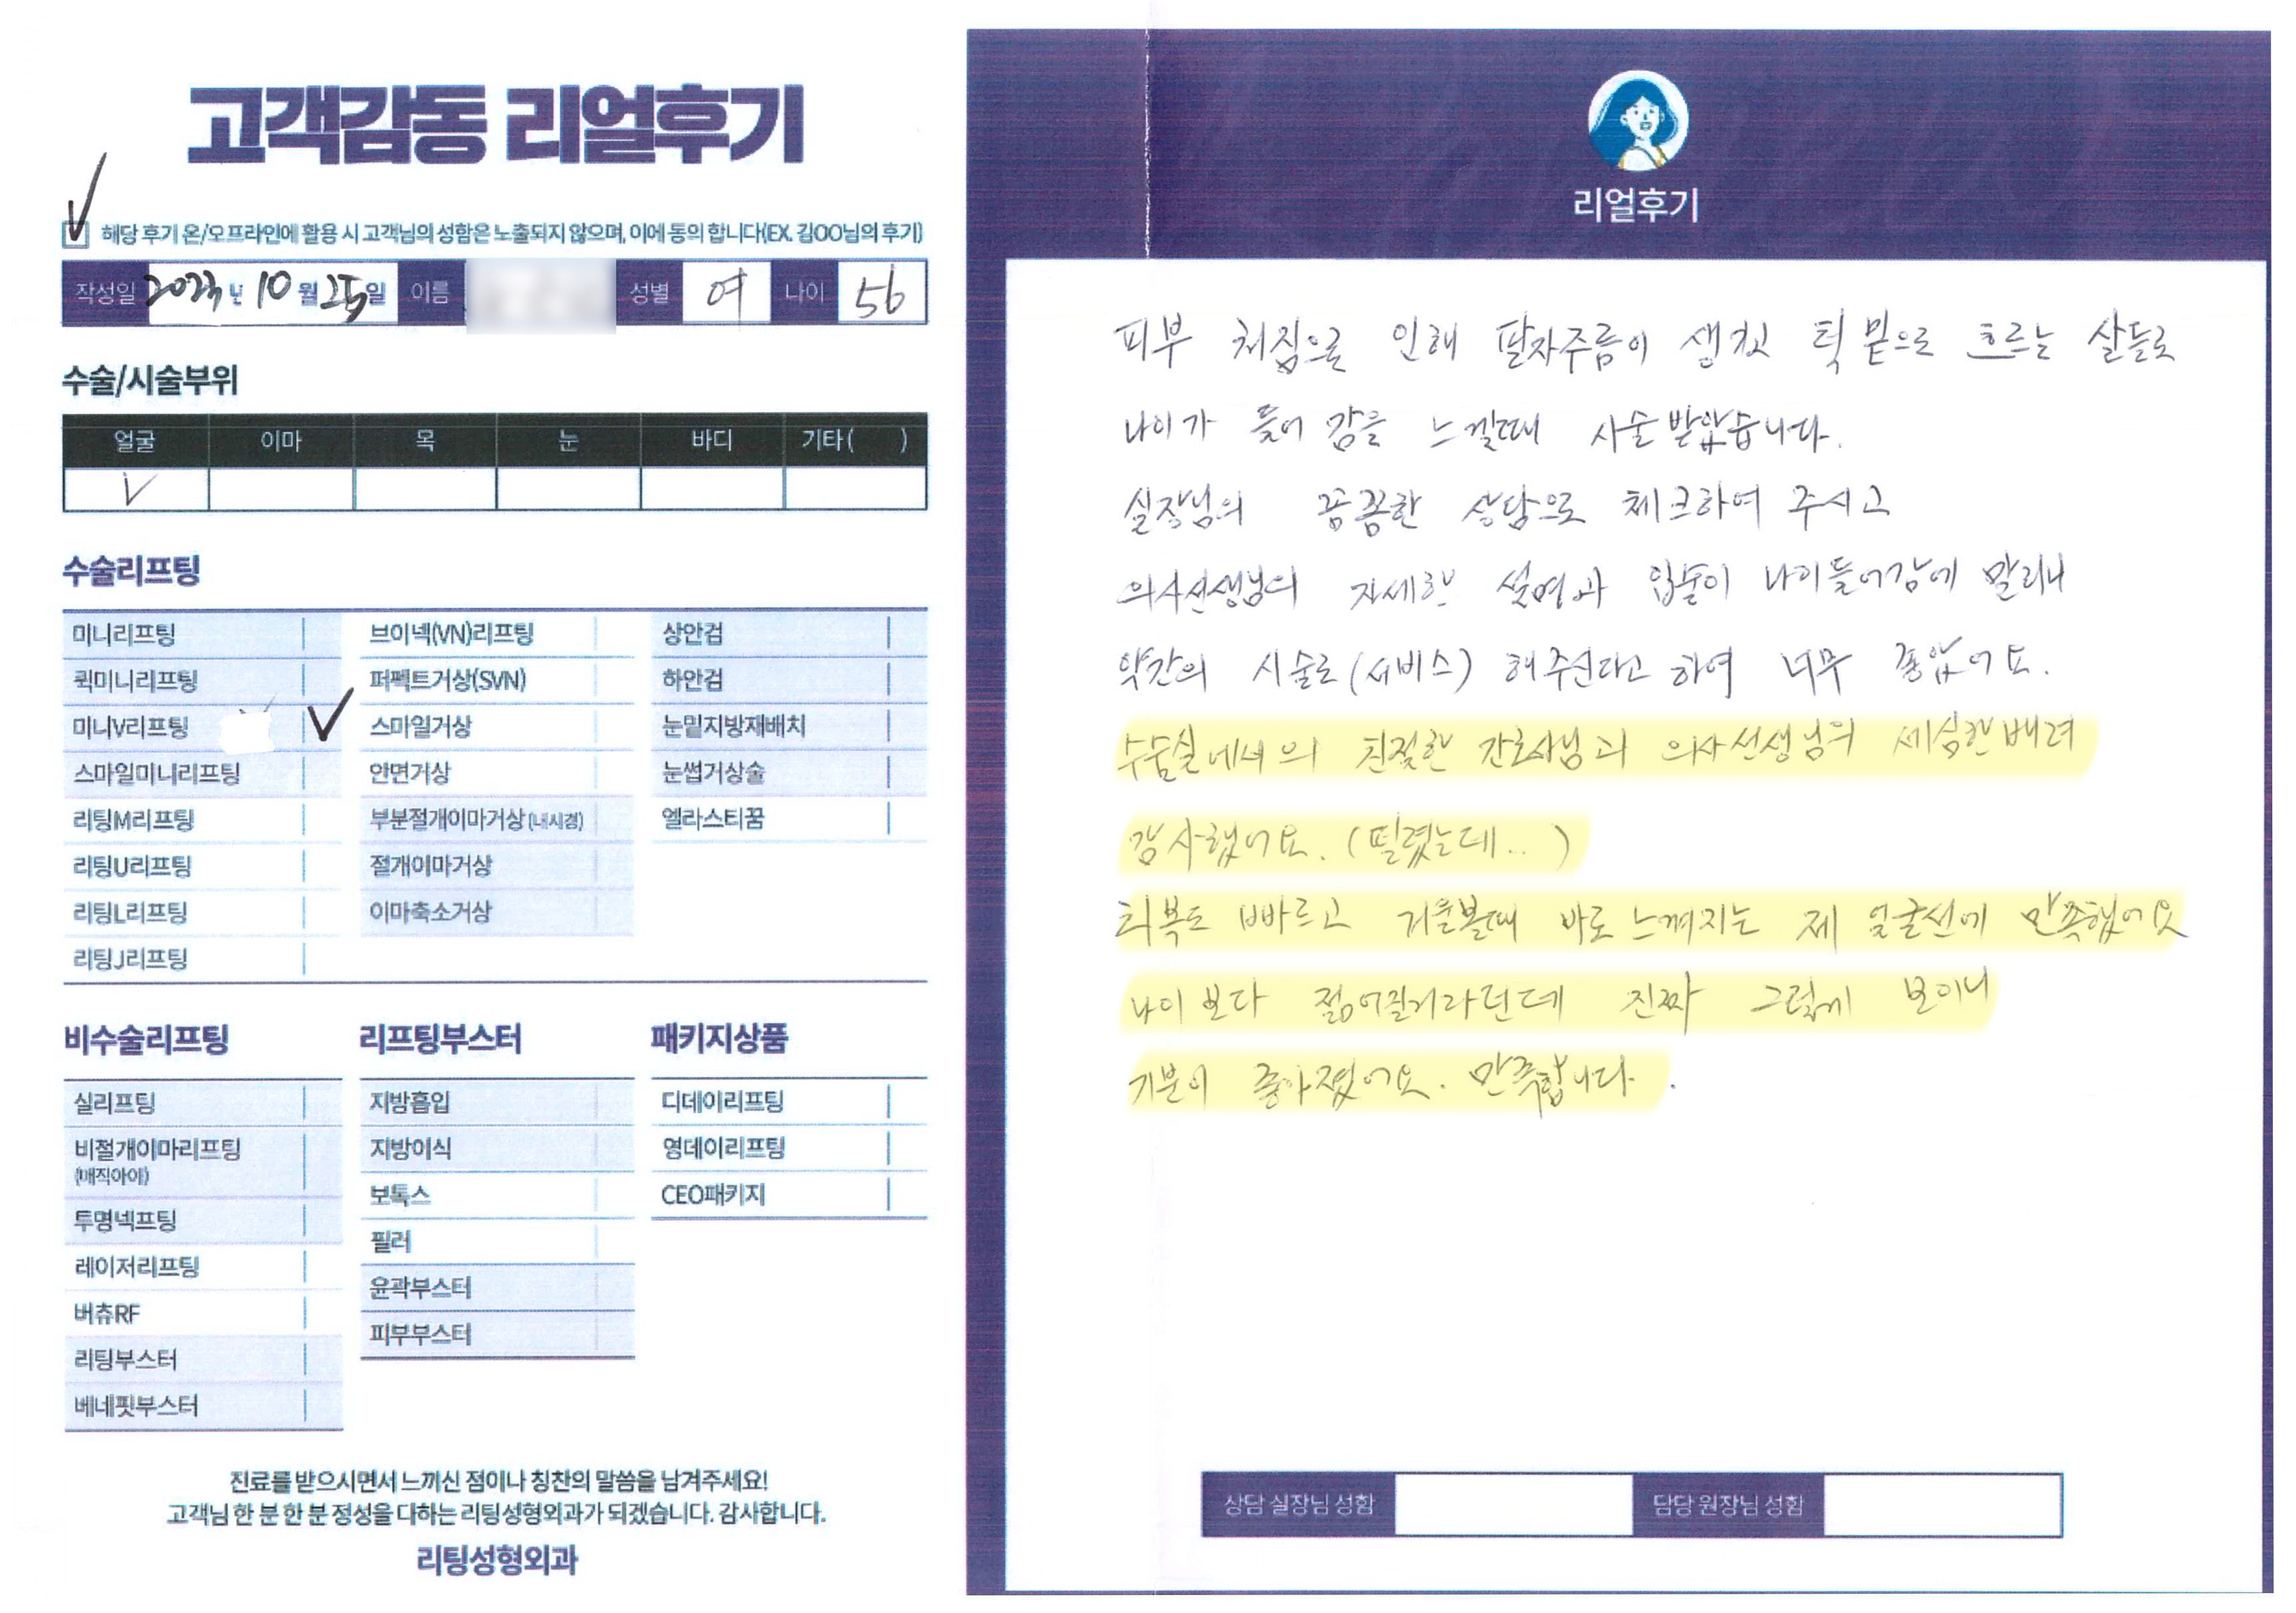 고객감동 리얼후기
해당 후기 온/오프라인에 활용 시 고객님의 성함은 노출되지 않으며, 이에 동의 합니다(EX. 김OO님의 후기)
작성일 2023년 10월 25일 이름 성별 여 나이 56
수술/시술부위
얼굴 이마 목 눈 바디 기타( )
수술리프팅
미니리프팅 브이넥(VN)리프팅 상안검
퀵미니리프팅 퍼펙트거상(SVN) 하안검
미니V리프팅 스마일거상 눈밑지방재배치
스마일미니리프팅 안면거상 눈썹거상술
리팅M리프팅 부분절개이마거상(내시경) 엘라스티꿈
리팅U리프팅 절개이마거상
리팅L리프팅 이마축소거상
리팅J리프팅
비수술리프팅 리프팅부스터 패키지상품
실리프팅 지방흡입 디데이리프팅
비절개이마리프팅 지방이식 영데이리프팅
(매직아이)
투명넥프팅 보톡스 CEO패키지
레이저리프팅 필러
버츄RF 윤곽부스터
리팅부스터 피부부스터
베네핏부스터
진료를 받으시면서 느끼신 점이나 칭찬의 말씀을 남겨주세요!
고객님 한 분 한 분 정성을 다하는 리팅성형외과가 되겠습니다. 감사합니다.
리팅성형외과
리얼후기
피부 처짐으로 인해 팔자주름이 생겼 턱 밑으로 흐르는 살들로
나이가 들어 감을 느낄때 시술 받았습니다.
실장님의 꼼꼼한 상담으로 체크하여 주시고
의사선생님의 자세한 설명과 입술이 나이들어감에 말리니
약간의 시술로 (서비스) 해주신다고 하여 너무 좋았어요.
수술실에서의 친절한 간호사님과 의사선생님의 세심한 배려
감사했어요. (떨렸는데..)
회복도 빠르고 거울볼때 바로 느껴지는 제 얼굴선에 만족했어요
나이보다 젊어질거라던데 진짜 그렇게 보이니
기분이 좋아졌어요. 만족합니다.
상담 실장님 성함 담당 원장님 성함